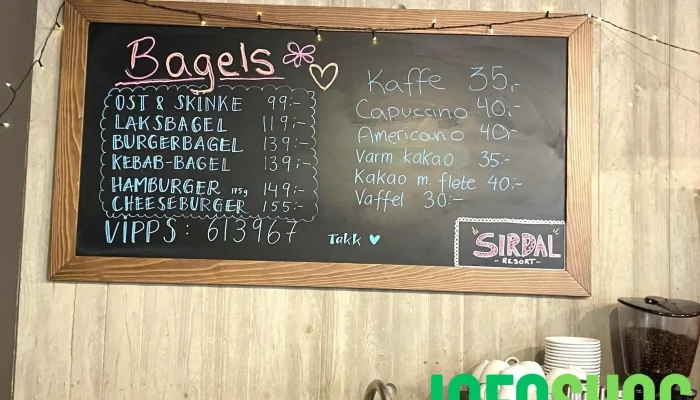 Bagels
OST & SKINKE 99:-
LAKSBAGEL 119:-
BURGERBAGEL 139:-
KEBAB-BAGEL 139:-
HAMBURGER 175g 149:-
CHEESEBURGER 155:-
VIPPS: 613967
Takk
Kaffe 35,-
Capuccino 40,-
Americano 40,-
Varm kakao 35:-
Kakao m. fløte 40:-
Vaffel 30:-
SIRDAL
- RESORT -